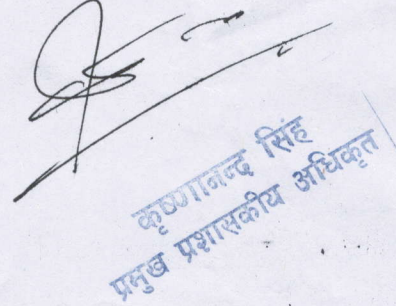 कृष्णानन्द सिंह
प्रमुख प्रशासकीय अधिकृत